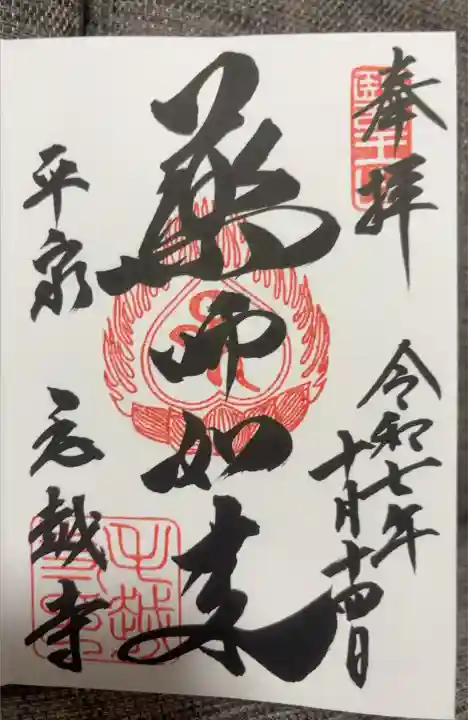 奉拝
令和七年
十月十四日
薬師如来
平泉 毛越寺
医王山
毛越寺